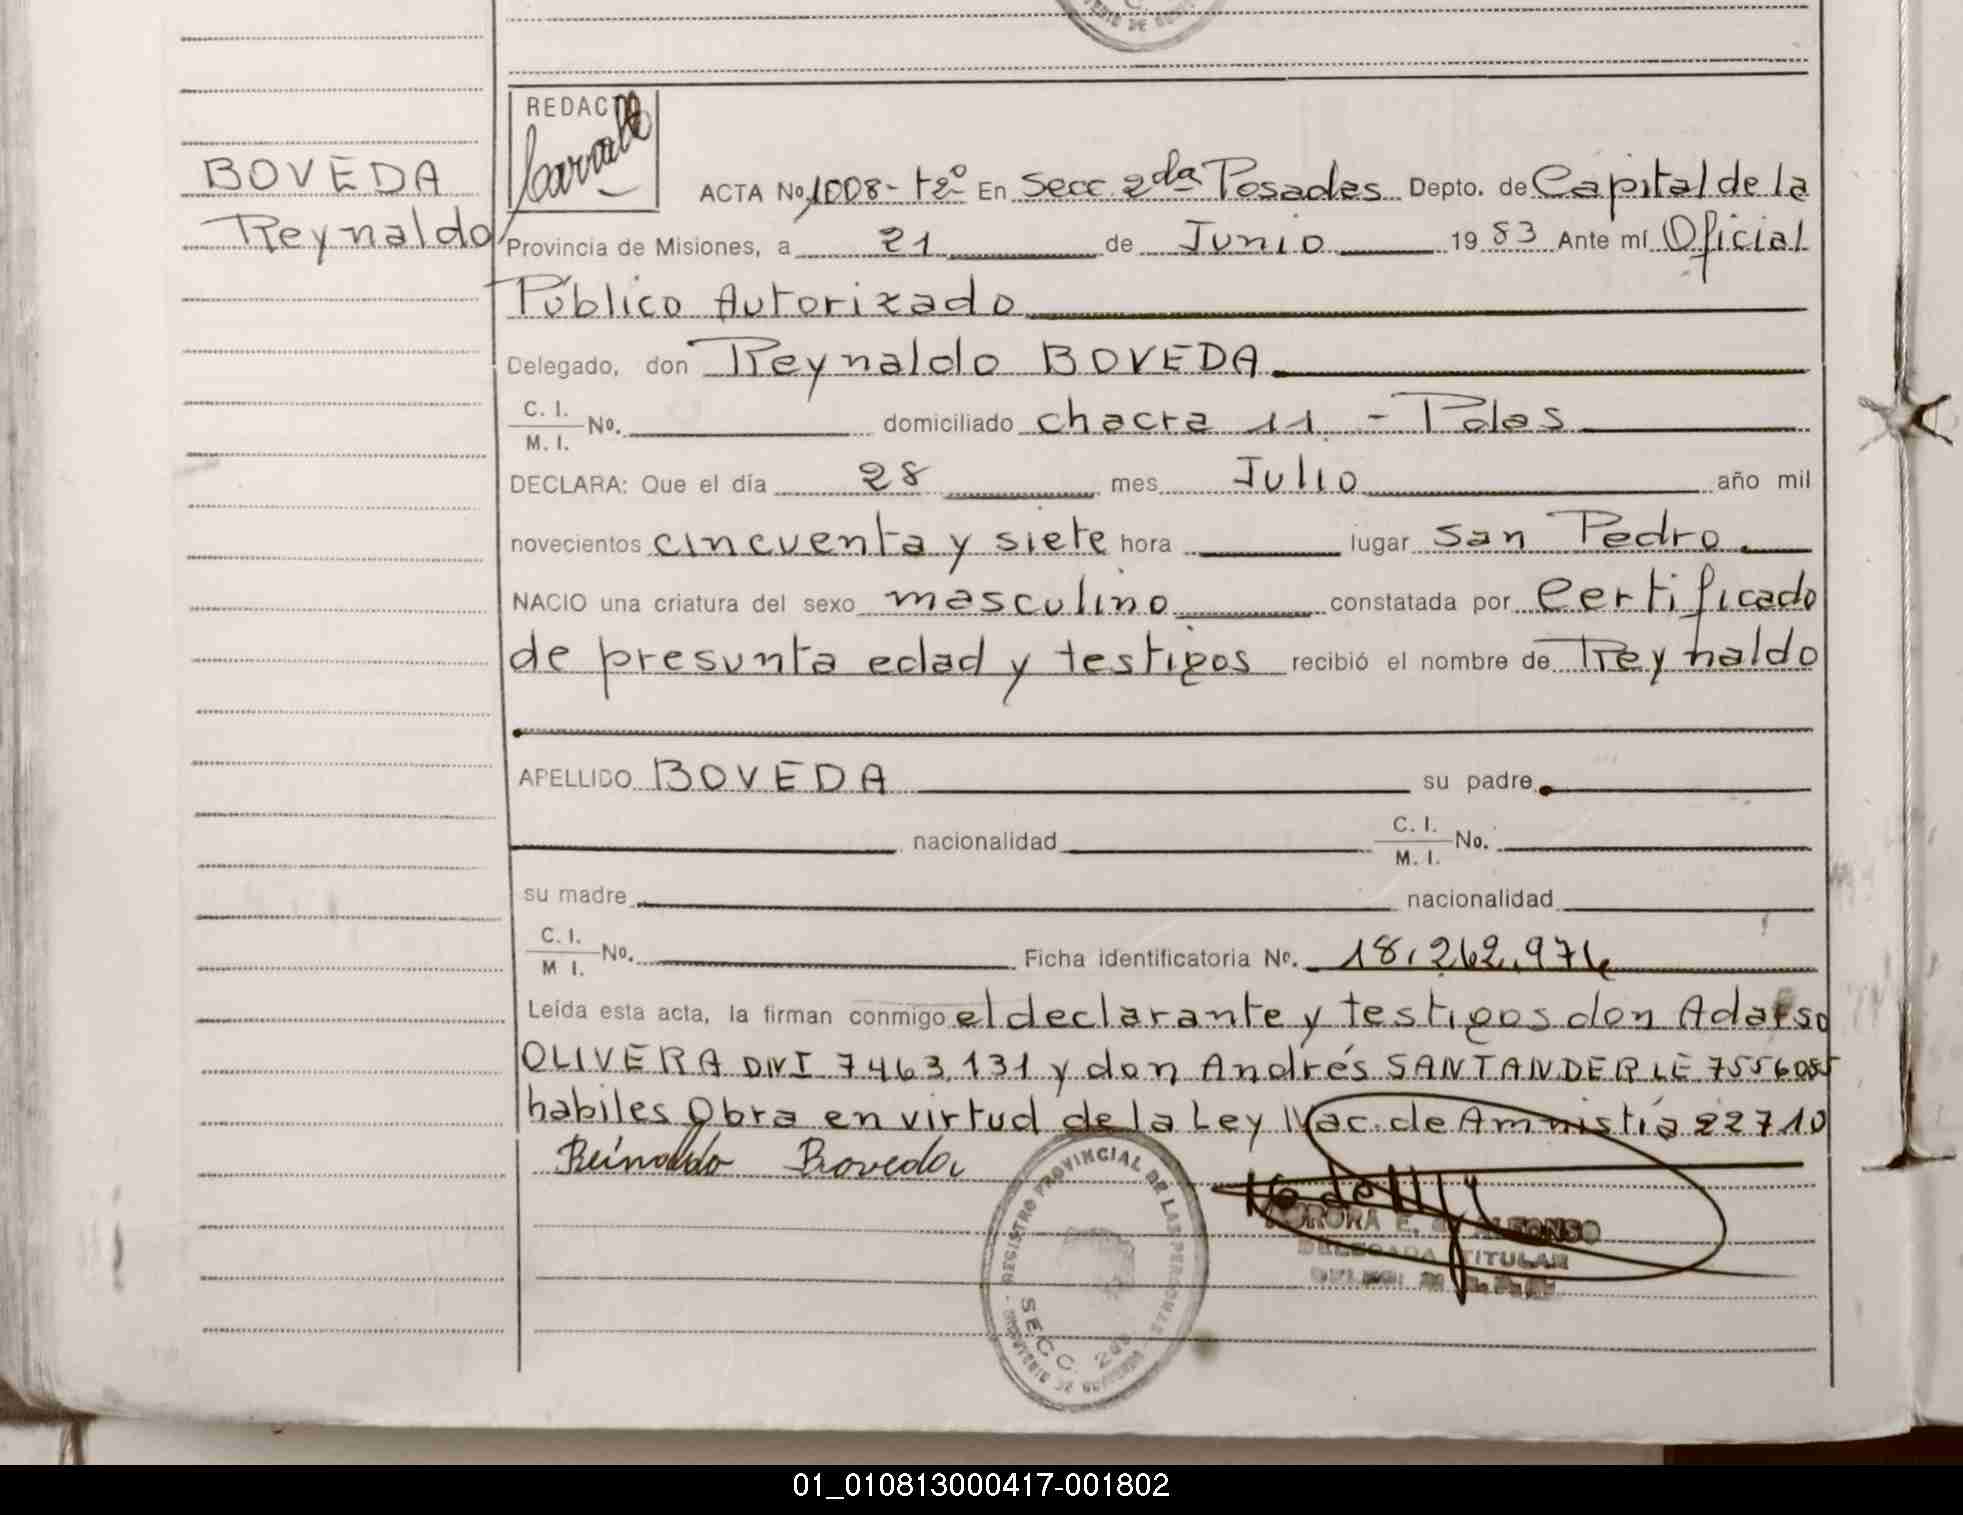 BOVEDA
Reynaldo
REDACTO
ACTA No. 1008- tº2º En Secc. 2da Posadas Depto. de Capital de la
Provincia de Misiones, a 21 de Junio 1983 Ante mí Oficial
Público Autorizado
Delegado, don Reynaldo BOVEDA
C. I. / M. I. No. domiciliado chacra 11 - Pdas
DECLARA: Que el día 28 mes Julio año mil
novecientos cincuenta y siete hora lugar San Pedro
NACIO una criatura del sexo masculino constatada por certificado
de presunta edad y testigos recibió el nombre de Reynaldo
APELLIDO BOVEDA su padre
nacionalidad C. I. / M. I. No.
su madre nacionalidad
C. I. / M I. No. Ficha identificatoria No. 18.262.974
Leída esta acta, la firman conmigo el declarante y testigos don
OLIVERA DNI 7463.131 y don Andrés SANTANDER LE 7556085
habiles Obra en virtud de la Ley Nac. de Amnistía 22710
Reinaldo Boveda
REGISTRO PROVINCIAL DE LAS PERSONAS
SECC. 2da
AURORA E. ALFONSO
DELEGADA TITULAR
01_010813000417-001802